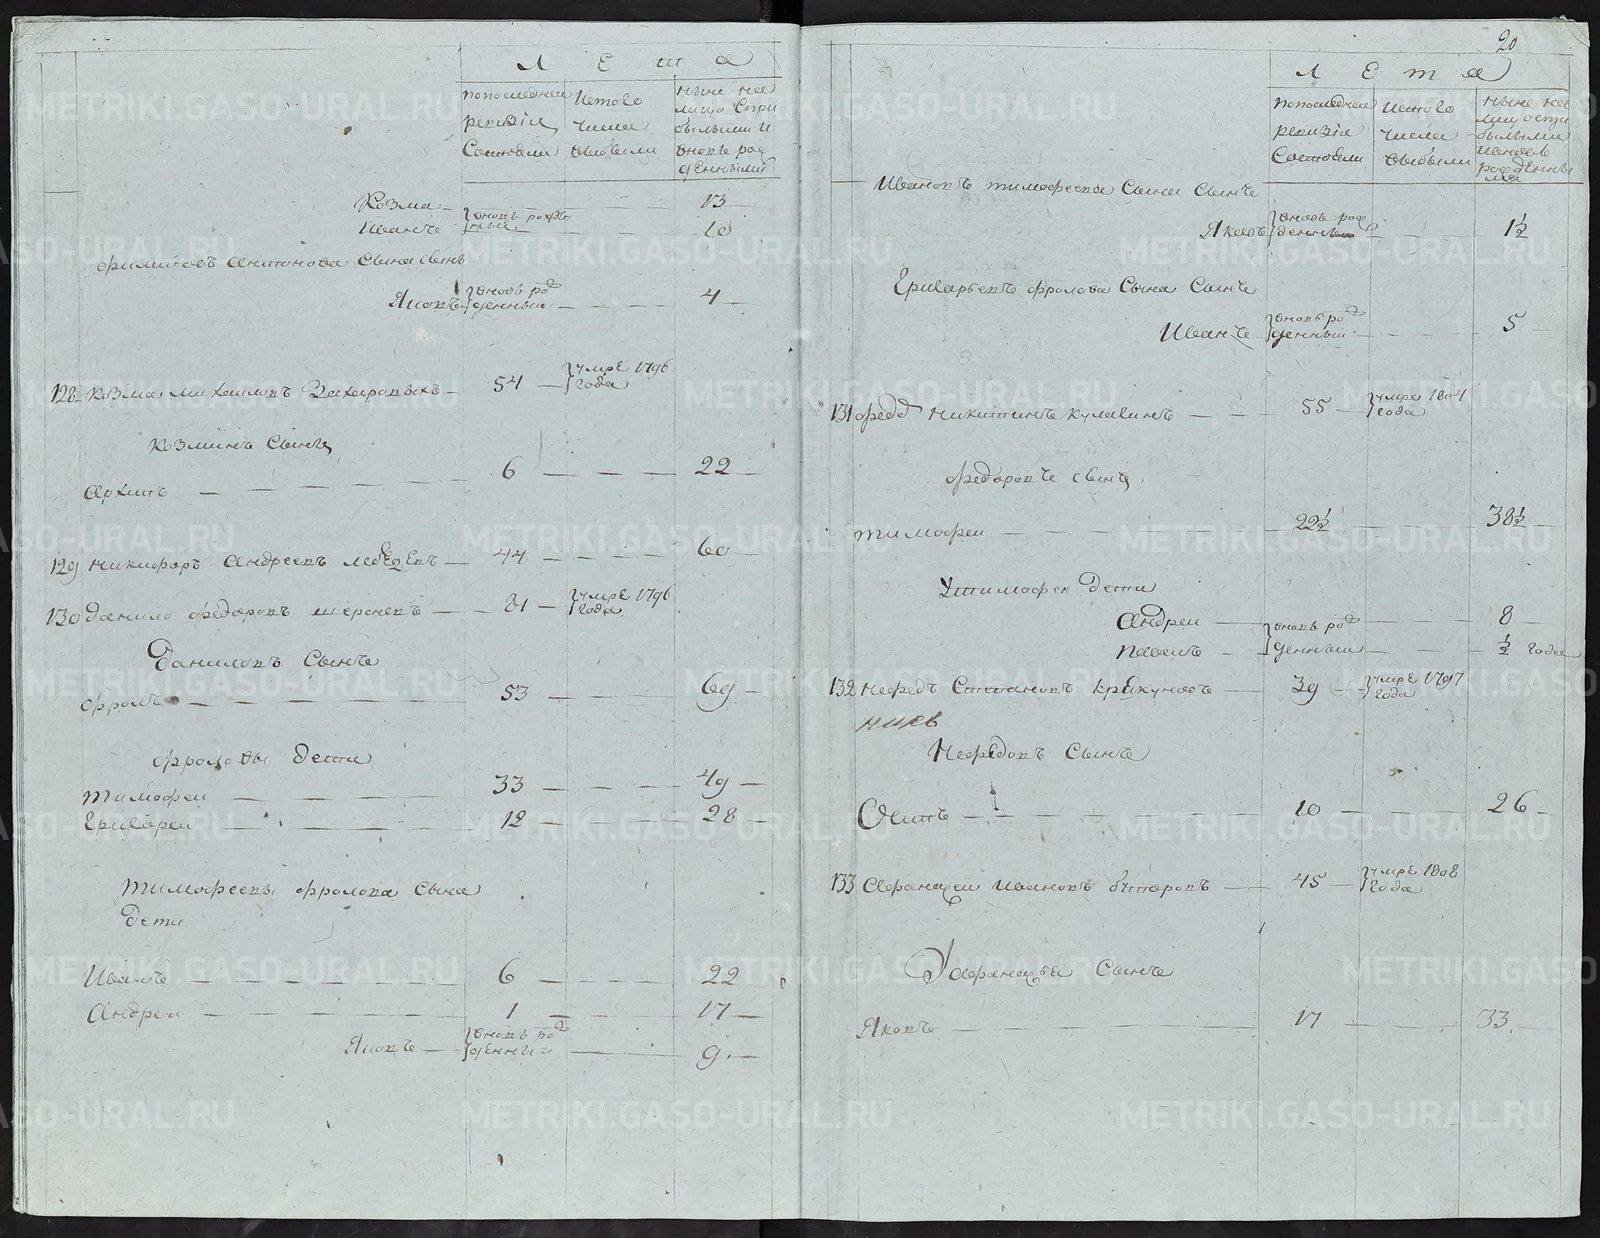 Лета
попоследней ревизiи состояли
ис того числа выбыли
ныне на лицо с при былыми и вновь рож денными
Козма 13
Иванъ вновь рожден ные 10
Филиповъ Антонова сына сынъ
Яковъ вновь рож денный 4
128 Козма Михаиловъ Захаровыхъ 54 умре 1796 года
Козминъ сынъ
Архипъ 6 22
129 Никифоръ Андреевъ 44 60
130 Данило Федоровъ 81 умре 1796 года
Даниловъ сынъ
Фролъ 53 69
Фроловы дети
Тимофеи 33 49
Григореи 12 28
Тимофеевы Фролова сына
дети
Иванъ 6 22
Андреи 1 17
Яковъ вновь рож денный 9
20
Лета
попоследней ревизiи состояли
ис того числа выбыли
ныне на лицо с при былыми и вновь рожденны ми
Ивановъ Тимофеева сына сынъ
Яковъ вновь рож денный 1½
Григорьевъ Фролова сына сынъ
Иванъ вновь рож денный 5
131 Федо Никитинъ Кулявинъ 55 умре 1804 года
Федоровъ сынъ
Тимофеи 22½ 38½
У Тимофея дети
Андреи 8
Павелъ вновь рож денныи ½ года
132 Нефедъ Степановъ 39 умре 1797 года
Нефедовъ сынъ
Осипъ 10 26
133 Афанасеи Ивановъ 45 умре 1808 года
У Афанасья сынъ
Яковъ 17 33
METRIKI.GASO-URAL.RU